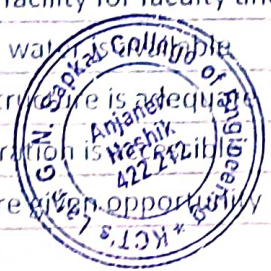 facility for faculty and
water is available
is adequate
is accessible
are given opportunity
KCT's Late G.N. Sapkal College of Engineering *
Anjaneri
Nashik
422 212